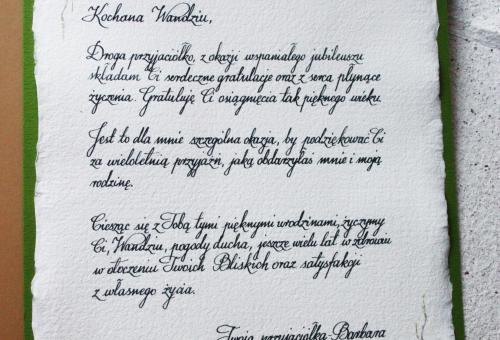 Kochana Wandziu,
Droga przyjaciółko, z okazji wspaniałego jubileuszu
składam Ci serdeczne gratulacje oraz z serca płynące
życzenia. Gratuluję Ci osiągnięcia tak pięknego wieku.
Jest to dla mnie szczególna okazja, by podziękować Ci
za wieloletnią przyjaźń, jaką obdarzyłaś mnie i moją
rodzinę.
Ciesząc się z Tobą tymi pięknymi urodzinami, życzymy
Ci, Wandziu, pogody ducha, jeszcze wielu lat w zdrowiu
w otoczeniu Twoich Bliskich oraz satysfakcji
z własnego życia.
Twoja przyjaciółka Barbara